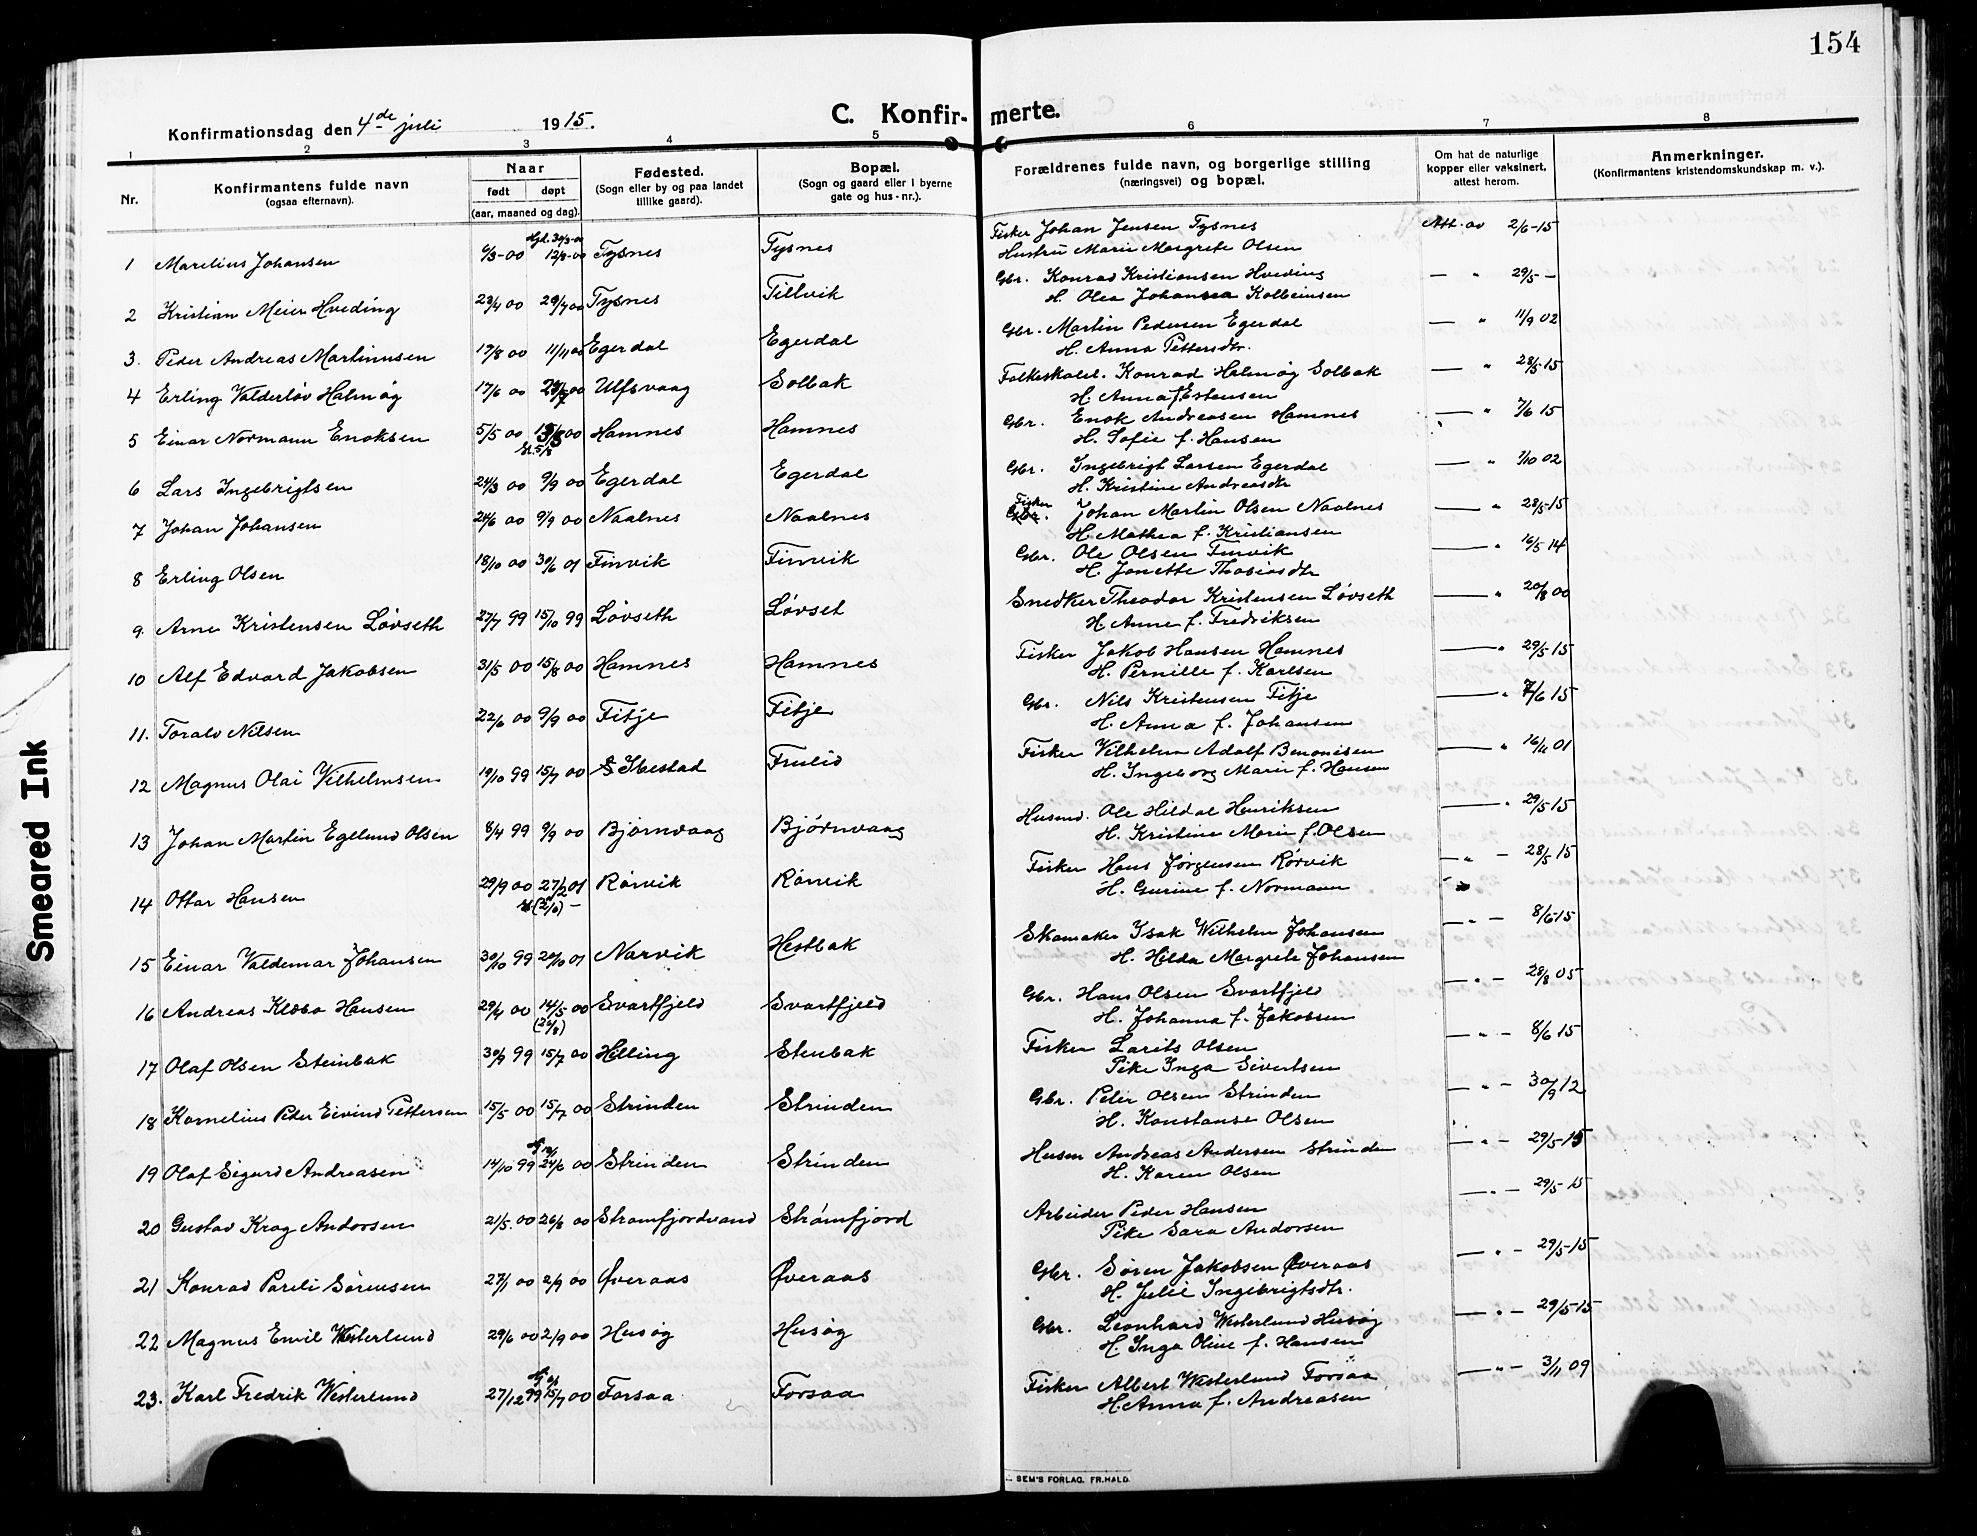 154
Konfirmationsdag den 4de juli 1915.
C. Konfir-merte.
1 2 3 4 5 6 7 8
Nr.
Konfirmantens fulde navn
(ogsaa efternavn).
Naar
født døpt
(aar, maaned og dag).
Fødested.
(Sogn eller by og paa landet
tillike gaard).
Bopæl.
(Sogn og gaard eller i byerne
gate og hus-nr.).
Forældrenes fulde navn, og borgerlige stilling
(næringsvei) og bopæl.
Om hat de naturlige
kopper eller vaksinert,
attest herom.
Anmerkninger.
(Konfirmantens kristendomskundskap m. v.).
1 Marelius Johansen 6/3-00 12/8-00 Tysnes Tysnes Fisker Johan Jensen Tysnes Att. av 2/6-15
Hustru Marie Margrete Olsen
2 Kristian Meier Hveding 23/4 00 29/7 00 Tysnes Tillvik Gbr. Konrad Kristiansen Hveding — " 29/5 —
H. Olea Johansea Kolbeinsen
3. Peder Andreas Martinusen 19/8 00 11/11 00 Egerdal Egerdal Gbr. Martin Pedersen Egerdal — " 11/9 02
H. Anna Pettersdtr.
4 Erling Valderløv Halmøg 17/6 00 00 Ulfsvaag Solbak Folkeskolel. Konrad Halmøg Solbak — " 28/5-15
H. Anna f. Estensen
5 Einar Normann Enoksen 5/5 00 00 Hamnes Hamnes Gbr. Enok Andreasen Hamnes — " 7/6 15
H. Sofie f. Hansen
6 Lars Ingebrigtsen 24/3 00 9/9 00 Egerdal Egerdal Gbr. Ingebrigt Larsen Egerdal — " 1/10 02
H. Kristine Andreasdtr
7 Johan Johansen 24/6 00 9/9 00 Naalnes Naalnes Fisker Johan Martin Olsen Naalnes — " 28/5-15
H. Mathea f. Kristiansen
8 Erling Olsen 18/10 00 30/6 01 Finvik Finvik Gbr. Ole Olsen Finvik — " 16/5 14
H. Jonette Thobiasdtr
9. Arne Kristensen Løvseth 27/7 99 15/10 99 Løvseth Løvset Snedker Theodor Kristensen Løvseth — " 20/8 00
H. Anne f. Fredriksen
10 Alf Edvard Jakobsen 31/5 00 15/8 00 Hamnes Hamnes Fisker Jakob Hansen Hamnes — " 29/5-15
H. Pernille f. Karlsen
11. Toralv Nilsen 22/6 00 9/9 00 Fitje Fitje Gbr. Nils Kristensen Fitje — " 7/6 15
H. Anna f. Johansen
12 Magnus Olai Vilhelmsen 19/10 99 15/7 00 Ibestad Frulid Fisker Vilhelm Adolf Benonisen — " 16/11 01
H. Ingeborg Marie f. Hansen
13 Johan Martin Egelund Olsen 8/4 99 9/9 00 Bjørnvaag Bjørnvaag Husmd. Ole Hildal Henriksen — " 29/5 15
H. Kristine Marie f. Olsen
14 Ottar Hansen 29/9 00 27/2 01 Rørvik Rørvik Fisker Hans Jørgensen Rørvik — " — 28/5 15
H. Gurine f. Normann
15 Einar Valdemar Johansen 30/10 99 20/10 01 Narvik Hestbak Skomaker Isak Wilhelm Johansen — " — 8/6-15
H. Hilda Margrete Johansen
16 Andreas Klæbo Hansen 29/4 00 14/5 00 Svartfjeld Svartfjeld Gbr. Hans Olsen Svartfjeld — " — 28/8 05
H. Johanna f. Jakobsen
17 Olaf Olsen Steinbak 30/9 99 15/7 00 Helling Stenbak Fisker Larits Olsen — " — 8/6 15
Pike Inga Sivertsen
18 Kornelius Peder Eivind Pettersen 15/5 00 15/7 00 Strinden Strinden Gbr. Peter Olsen Strinden — " — 30/9 12
H. Konstanse Olsen
19 Olaf Sigurd Andreasen 14/10 99 24/6 00 Strinden Strinden Husm Andreas Andersen Strinden — " — 29/5-15
H. Karen Olsen
20 Gustav Krog Andorsen 21/5.00 26/8 00 Strømfjordvand Strømfjord Arbeider Peder Hansen — " — 29/5-15
Pike Sara Andorsen
21 Konrad Pareli Sørensen 27/1 00 2/9 00 Øveraas Øveraas Gbr. Søren Jakobsen Øveraas — " — 29/5-15
H. Julie Ingebrigtsdtr.
22 Magnus Emil Westerlund 29/6 00 2/9 00 Husøg Husøg Gbr. Leonhard Westerlund Husøg — " — 29/5-15
H. Inga Oline f. Hansen
23. Karl Fredrik Westerlund 27/12 99 15/7 00 Forsaa Forsaa Fisker Albert Westerlund Forsaa — " — 3/11 09
H. Anna f. Andreasen
SEM'S FORLAG. FR.HALD.
Smeared Ink